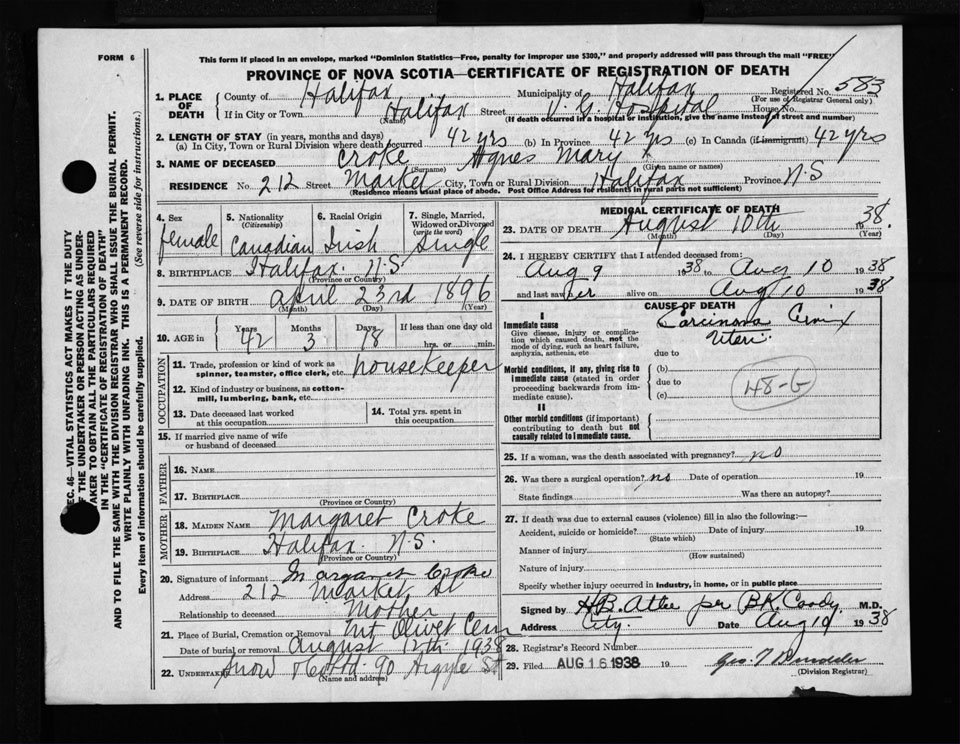 FORM 6
This form if placed in an envelope, marked "Dominion Statistics—Free, penalty for improper use $300," and properly addressed will pass through the mail "FREE"
PROVINCE OF NOVA SCOTIA—CERTIFICATE OF REGISTRATION OF DEATH
1. PLACE OF DEATH County of Halifax Municipality of Halifax Registered No. 583
(For use of Registrar General only)
If in City or Town Halifax Street V. G. Hospital House No.
(Name) (If death occurred in a hospital or institution, give the name instead of street and number)
2. LENGTH OF STAY (in years, months and days)
(a) In City, Town or Rural Division where death occurred 42 yrs (b) In Province 42 yrs (c) In Canada (if immigrant) 42 yrs
3. NAME OF DECEASED Croke Agnes Mary
(Surname) (Given name or names)
RESIDENCE No. 212 Street Market City, Town or Rural Division Halifax Province N.S
(Residence means usual place of abode. Post Office Address for residents in rural parts not sufficient)
4. Sex female
5. Nationality (Citizenship) Canadian
6. Racial Origin Irish
7. Single, Married, Widowed or Divorced (write the word) Single
8. BIRTHPLACE Halifax N.S.
(Province or Country)
9. DATE OF BIRTH April 23rd 1896
(Month) (Day) (Year)
10. AGE in Years 42 Months 3 Days 18 If less than one day old
hrs. or min.
OCCUPATION
11. Trade, profession or kind of work as spinner, teamster, office clerk, etc. housekeeper
12. Kind of industry or business, as cotton-mill, lumbering, bank, etc.
13. Date deceased last worked at this occupation
14. Total yrs. spent in this occupation
15. If married give name of wife or husband of deceased
FATHER
16. NAME
17. BIRTHPLACE
(Province or Country)
MOTHER
18. MAIDEN NAME Margaret Croke
19. BIRTHPLACE Halifax N.S.
(Province or Country)
20. Signature of informant Margaret Croke
Address 212 Market St
Relationship to deceased Mother
21. Place of Burial, Cremation or Removal Mt Olivet Cem
Date of burial or removal August 12th 1938
22. UNDERTAKER Snow & Co Ltd. 90 Argyle St
(Name and address)
MEDICAL CERTIFICATE OF DEATH
23. DATE OF DEATH August 10th 1938
(Month) (Day) (Year)
24. I HEREBY CERTIFY that I attended deceased from
Aug 9 1938 to Aug 10 1938
and last saw her alive on Aug 10 1938
CAUSE OF DEATH
I
Immediate cause
Give disease, injury or complication which caused death, not the mode of dying, such as heart failure, asphyxia, asthenia, etc
Carcinoma Cervix
Uteri.
due to
Morbid conditions, if any, giving rise to immediate cause (stated in order proceeding backwards from immediate cause).
(b)
due to
(c)
48-G
II
Other morbid conditions (if important) contributing to death but not causally related to immediate cause.
25. If a woman, was the death associated with pregnancy? no
26. Was there a surgical operation? no Date of operation 19
State findings Was there an autopsy?
27. If death was due to external causes (violence) fill in also the following:—
Accident, suicide or homicide? Date of injury 19
(State which)
Manner of injury
(How sustained)
Nature of injury
Specify whether injury occurred in industry, in home, or in public place
Signed by H.B. Atlee per B.K. Coady M.D.
Address City. Date Aug 1938
28. Registrar's Record Number
29. Filed AUG 16 1938 19
(Division Registrar)
SEC. 46—VITAL STATISTICS ACT MAKES IT THE DUTY
OF THE UNDERTAKER OR PERSON ACTING AS UNDER-
TAKER TO OBTAIN ALL THE PARTICULARS REQUIRED
IN THE "CERTIFICATE OF REGISTRATION OF DEATH"
AND TO FILE THE SAME WITH THE DIVISION REGISTRAR WHO SHALL ISSUE THE BURIAL PERMIT.
WRITE PLAINLY WITH UNFADING INK. THIS IS A PERMANENT RECORD.
Every item of information should be carefully supplied. (See reverse side for instructions.)